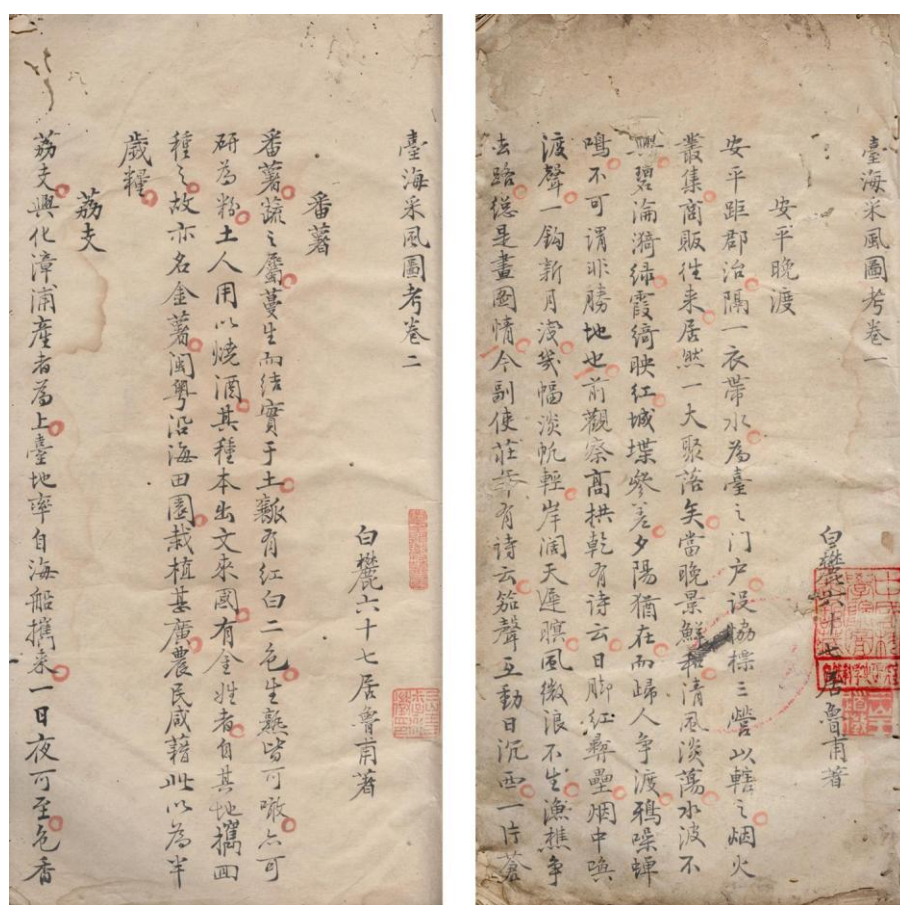 臺海采風圖考卷一
白麓六十七居魯甫著
安平晚渡
安平距郡治隔一衣帶水為臺之门户设協標三營以轄之烟火
叢集商販往来居然一大聚落矣當晚景鮮和清風淡蕩水波不
興碧淪漪緑霞綺映红城堞參差夕陽猶在而歸人争渡鴉噪蟬
鳴不可謂非勝地也前觀察髙拱乾有诗云日脚红彝壘烟中喚
渡聲一鈎新月浅幾幅淡帆輕岸阔天遲暝風微浪不生漁樵争
去路總是畫圖情今副使莊年有诗云笳聲互動日沉西一片蒼
臺海采風圖考卷二
白麓六十七居魯甫著
番薯
番薯蔬之屬蔓生而结實于土瓤有红白二色生熟皆可噉亦可
研為粉土人用以燒酒其種本出文來國有金姓者自其地攜回
種之故亦名金薯閩粤沿海田園栽植甚廣農民咸藉此以為半
歲糧
荔支
荔支興化漳浦產者為上臺地率自海船攜來一日夜可至色香